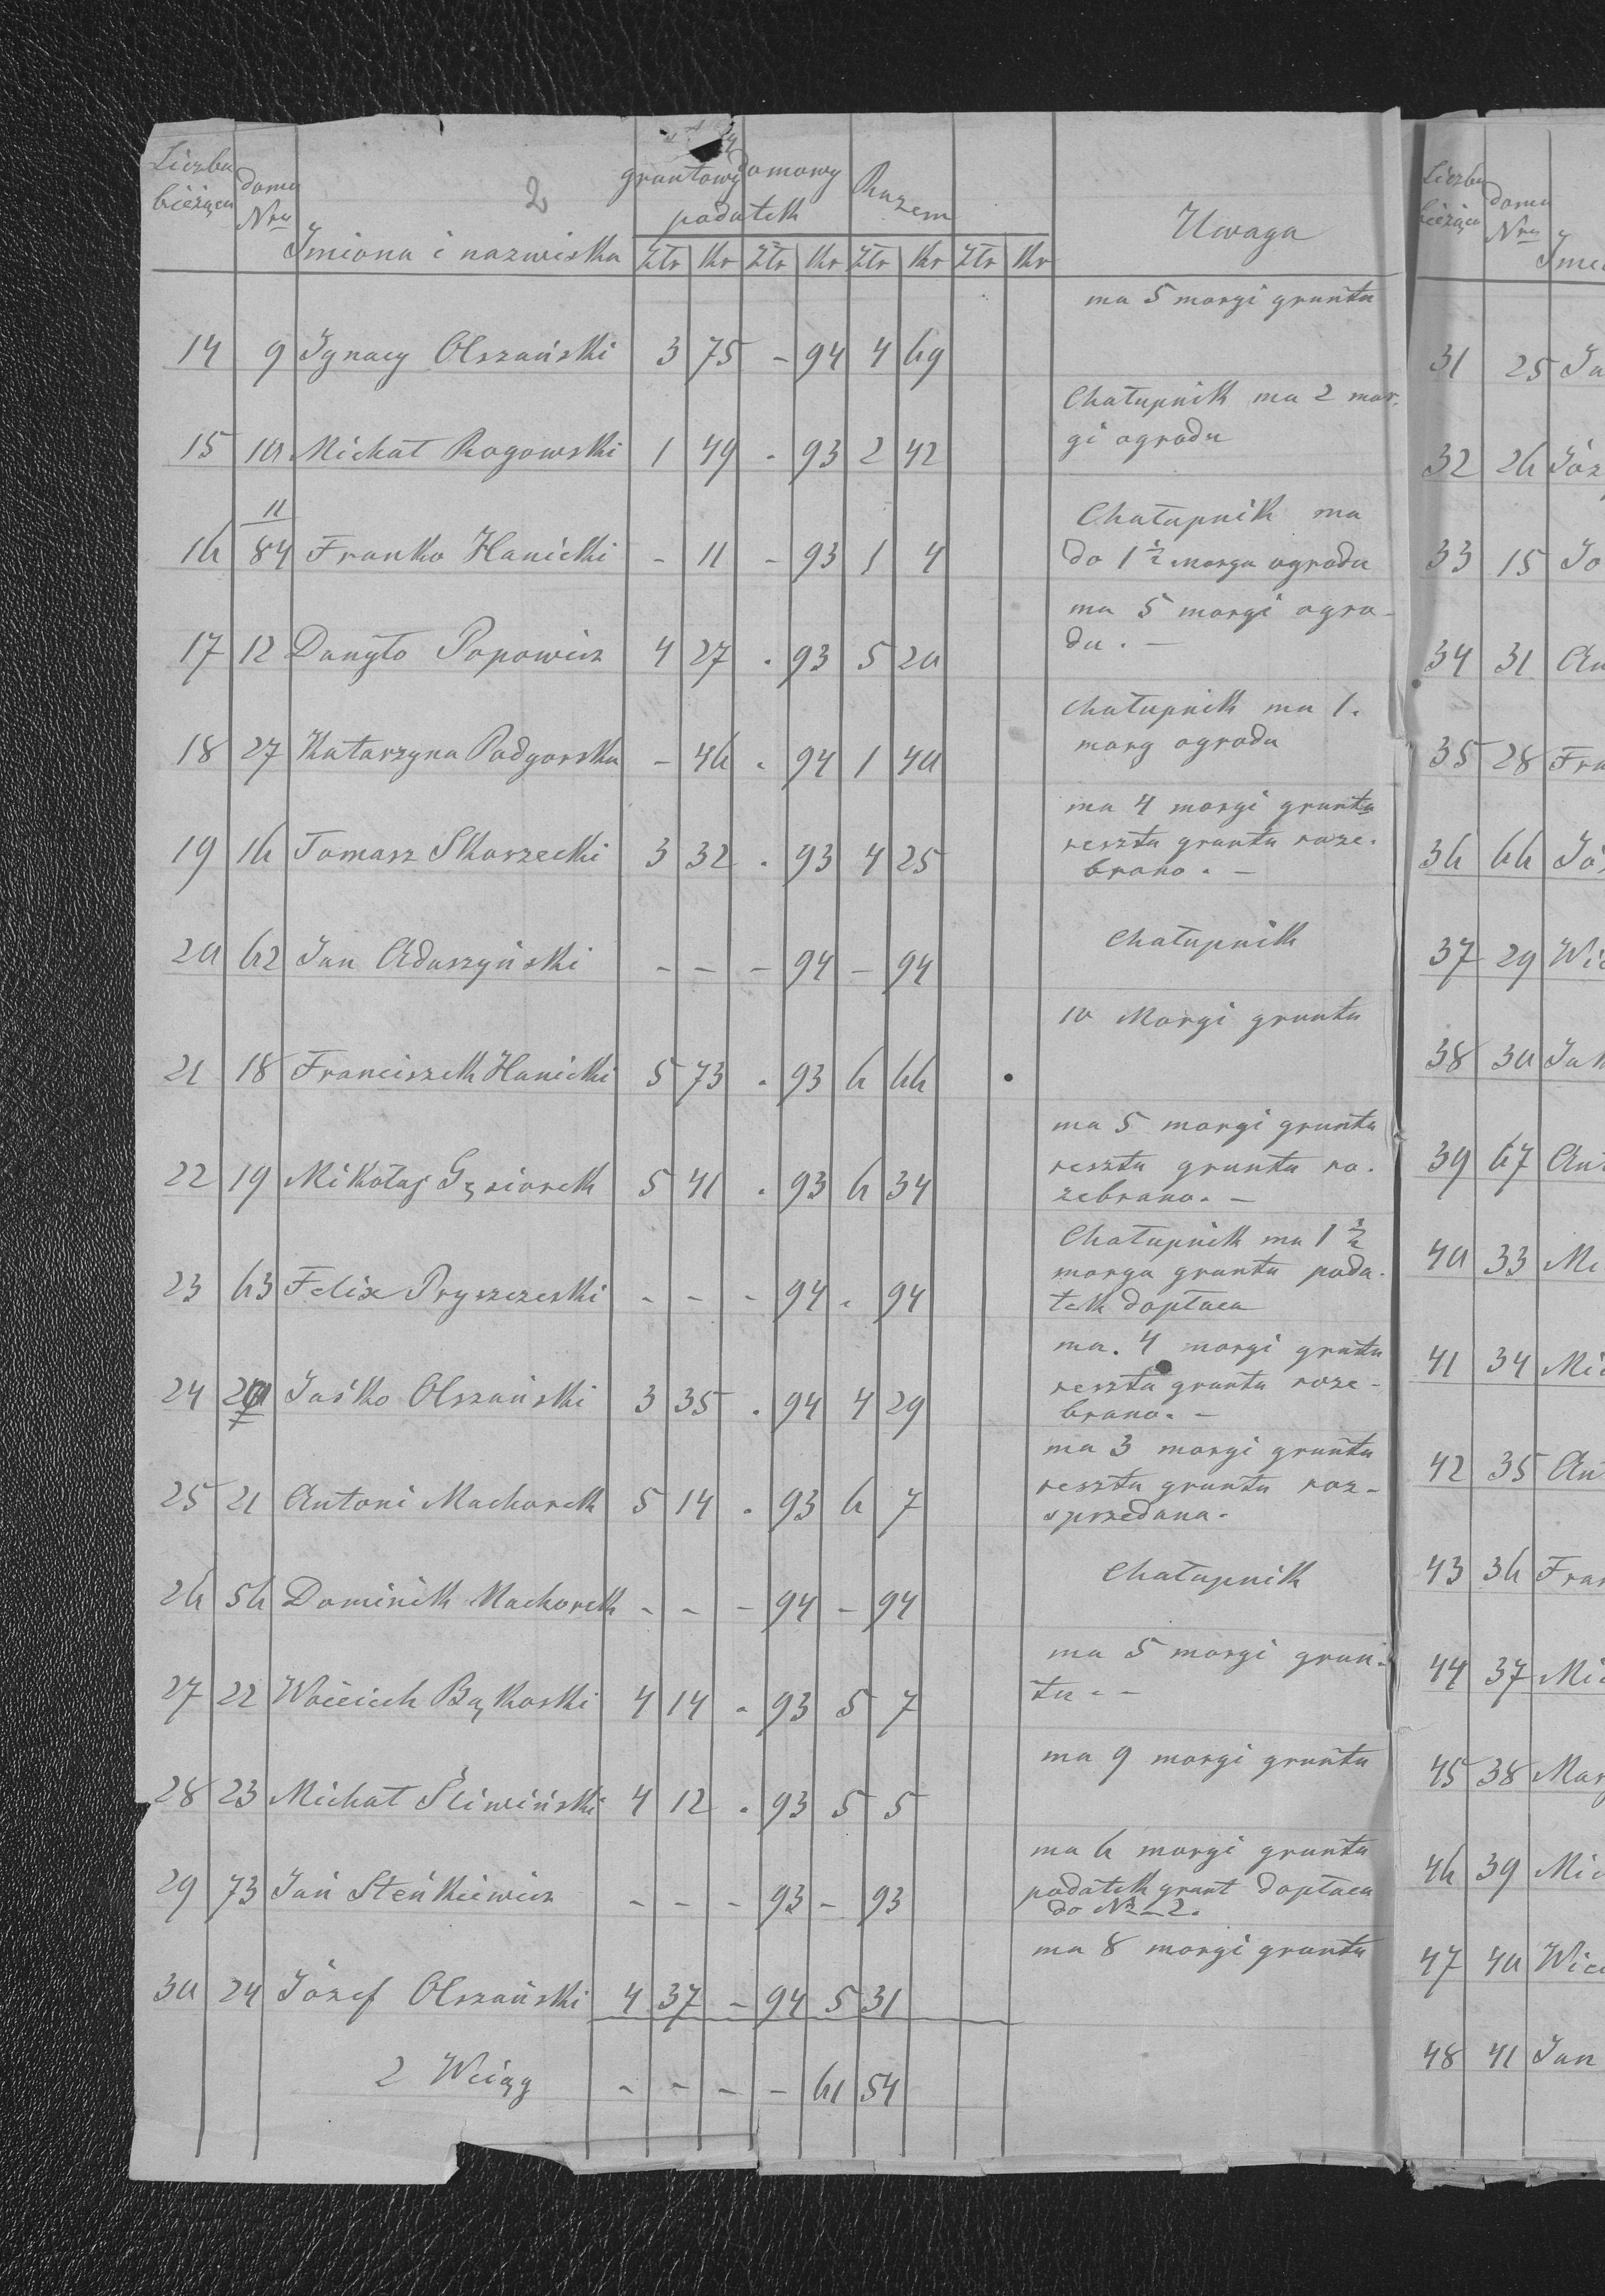 2
Liczba bieżąca | domu Nru | Imiona i nazwiska | gruntowy podatek | domowy | Razem | Uwaga
Złr | Kr | Złr | Kr | Złr | Kr | Złr | Kr
14 | 9 | Ignacy Olszański | 3 | 75 | - | 94 | 4 | 69 | ma 5 morgi gruntu
15 | 10 | Michał Rogowski | 1 | 49 | . | 93 | 2 | 42 | Chałupnik ma 2 mor-
gi ogrodu
16 | 11/84 | Franko Hanicki | - | 11 | - | 93 | 1 | 4 | Chałupnik ma
do 1 1/2 morga ogrodu
17 | 12 | Danyło Popowicz | 4 | 27 | . | 93 | 5 | 20 | ma 5 morgi ogro-
du. -
18 | 27 | Katarzyna Podgorska | - | 46 | . | 94 | 1 | 40 | chałupnik ma 1.
morg ogrodu
19 | 16 | Tomasz Skoszecki | 3 | 32 | . | 93 | 4 | 25 | ma 4 morgi gruntu
reszta gruntu roze-
brano. -
20 | 62 | Jan Adaszyński | - | - | - | 94 | - | 94 | Chałupnik
21 | 18 | Franciszek Hanicki | 5 | 73 | . | 93 | 6 | 66 | 10 Morgi gruntu
22 | 19 | Mikołaj Gąsiorek | 5 | 41 | . | 93 | 6 | 34 | ma 5 morgi gruntu
reszta gruntu ro-
zebrano. -
23 | 63 | Felix Pryszczeski | - | - | - | 94 | . | 94 | Chałupnik ma 1 1/2
morga gruntu poda-
tek dopłaca
24 | 20 | Jaśko Olszański | 3 | 35 | . | 94 | 4 | 29 | ma. 4 morgi gruntu
reszta gruntu roze-
brano. -
25 | 21 | Antoni Machorek | 5 | 14 | . | 93 | 6 | 7 | ma 3 morgi gruntu
reszta gruntu roz-
sprzedana.
26 | 56 | Dominik Machorek | - | - | - | 94 | - | 94 | Chałupnik
27 | 22 | Woiciech Bąkoski | 4 | 14 | . | 93 | 5 | 7 | ma 5 morgi grun-
tu. -
28 | 23 | Michał Śliwiński | 4 | 12 | . | 93 | 5 | 5 | ma 9 morgi gruntu
29 | 73 | Jan Steńkiewicz | - | - | - | 93 | - | 93 | ma 6 morgi gruntu
podatek grunt dopłaca
do Nr 2.
30 | 24 | Józef Olszański | 4 | 37 | - | 94 | 5 | 31 | ma 8 morgi gruntu
2 Wciąg | - | - | - | - | 61 | 54
Liczba bieżąca | domu Nru | Imi
31 | 25 | Ja
32 | 26 | Józ
33 | 15 | Jo
34 | 31 | An
35 | 28 | Fra
36 | 66 | Jó
37 | 29 | Wi
38 | 30 | Jak
39 | 67 | Ant
40 | 33 | Mi
41 | 34 | Mi
42 | 35 | Ant
43 | 36 | Fran
44 | 37 | Mi
45 | 38 | Mar
46 | 39 | Mic
47 | 40 | Wic
48 | 41 | Jan